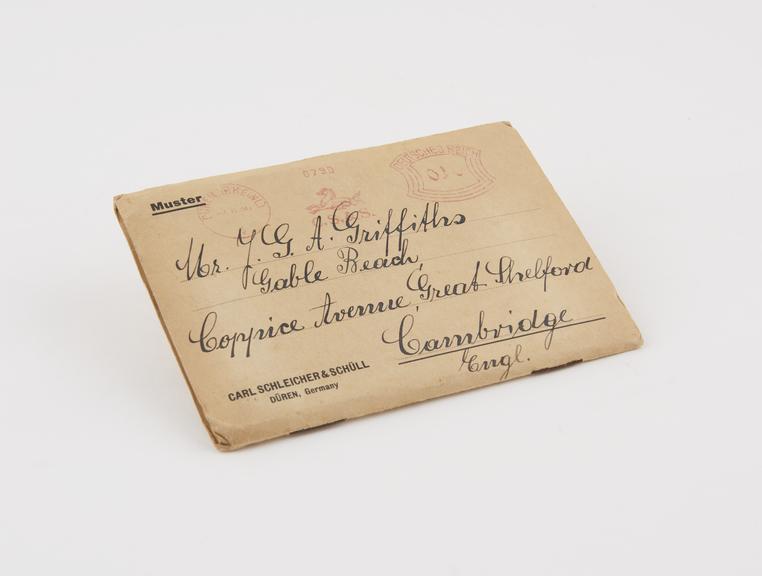 Muster
0790
DEUTSCHES REICH
Mr. J. G. A. Griffiths
Gable Beach,
Coppice Avenue, Great Shelford
Cambridge
Engl.
CARL SCHLEICHER & SCHÜLL
DÜREN, Germany